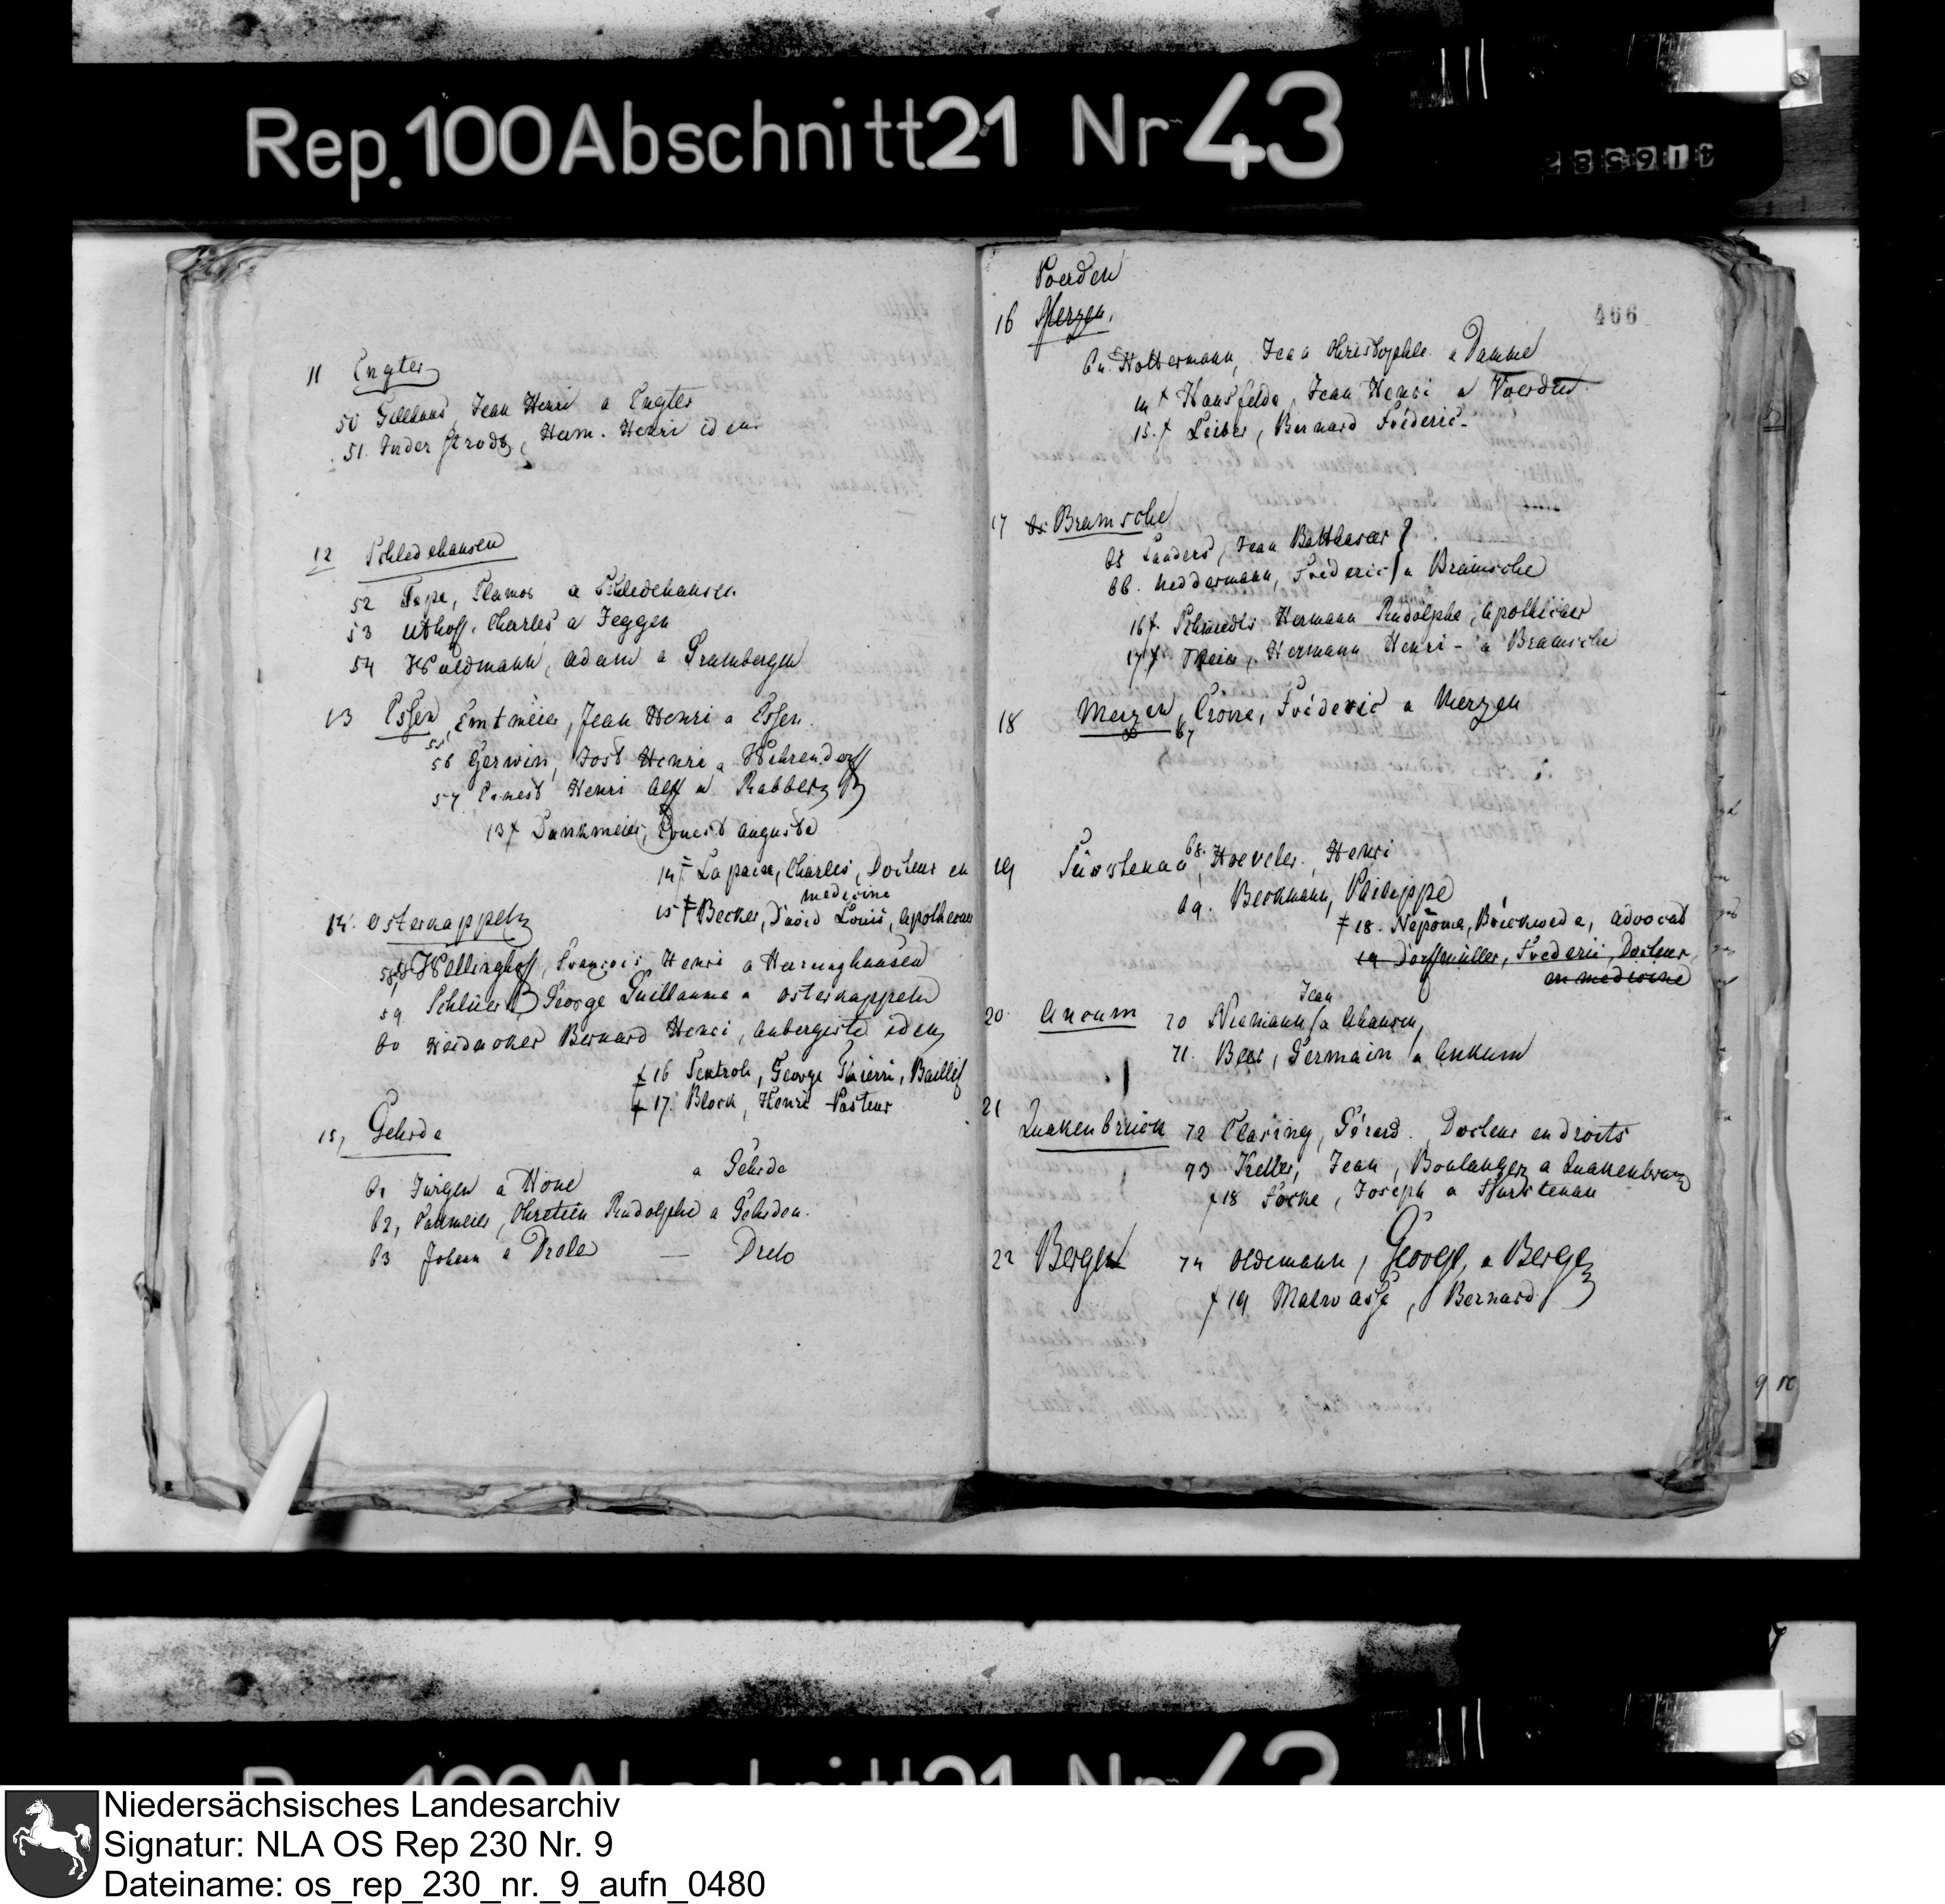 Rep. 100 Abschnitt 21 Nr 43
11 Engter
50 Gillhaus, Jean Henri a Engter
51. Inder Strodt, Herm. Henri idem
12 Schledehausen
52 Tepe, Clamor a Schledehausen
53 Uthoff, Charles a Jeggen
54 Waldmann, Adam a Grambergen
13 Essen, Emtmeier, Jean Henri a Essen.
55
56 Gerwin, Jost Henri a Wehrendorff
57 Ernest Henri Alff a Rabber
13 + Dunkmeier, Ernest Auguste
14 + La paix, Charles, Docteur en
medecine
15 + Becker, David Louis, Apothecar
14. Osterkappeln
58 Wellinghoff, François Henri a Haringhausen
59 Schlüer George Guillaume a Osterkappeln
60 Bernard Henri, Aubergiste idem
+ 16 George Thierri, Baillif
+ 17. Block, Henri Pasteur
15, Gehrde
a Gehrde
61 Jürgen a Höne
62, Chretien Rudolphe a Gehrden.
63 Johann a Drele — Drelo
466
Voerden
16 Merzen,
64. Holtermann, Jean Christophle a Damme
14 + Hausfelde, Jean Henri a Voerden
15. + Leiber, Bernard Fréderic-
17 65 Bramsche
65 Sanders, Jean Balthasar
66. Neddermann, Fréderic a Bramsche
16 +. Schmidts Hermann Rudolphe, Apothicair
17 +. Meier, Hermann Henri - a Bramsche
18 Merzen, Crone, Fréderic a Merzen
67
19 Fürstenau 68. Hoeveler, Henri
69. Beckmann, Philippe
+ 18. Nepomu, Brickwede, Advocat
19 Dorffmüller, Frederic, Docteur
en medecine
Jean
20 Ancum 70 Niemann a Ahausen,
71. Beer, Germain a Ankum
21 Quakenbrück 72 Clasing, Gérard. Docteur en droits
73 Keller, Jean, Boulanger a Quakenbruc
+ 18 Focke, Joseph a Furstenau
22 Bergen 74 Oldemann, George, a Berge
+ 19 Malwasse, Bernard
Niedersächsisches Landesarchiv
Signatur: NLA OS Rep 230 Nr. 9
Dateiname: os_rep_230_nr._9_aufn_0480